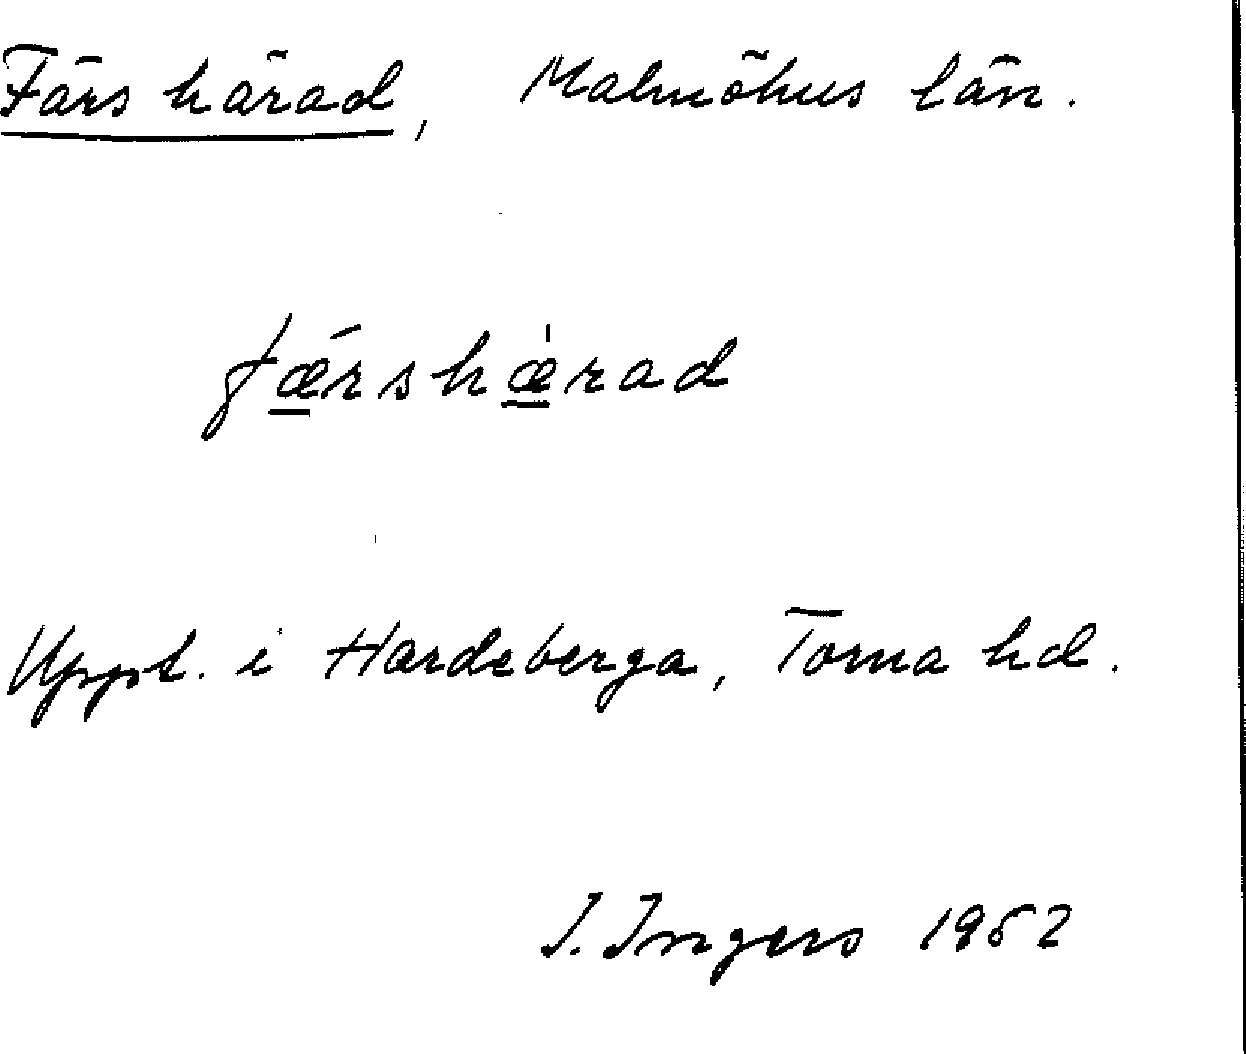 Färs härad, Malmöhus län.
fǽrshæ̀rad
Uppt. i Hardeberga, Torna hd.
I. Ingers 1952